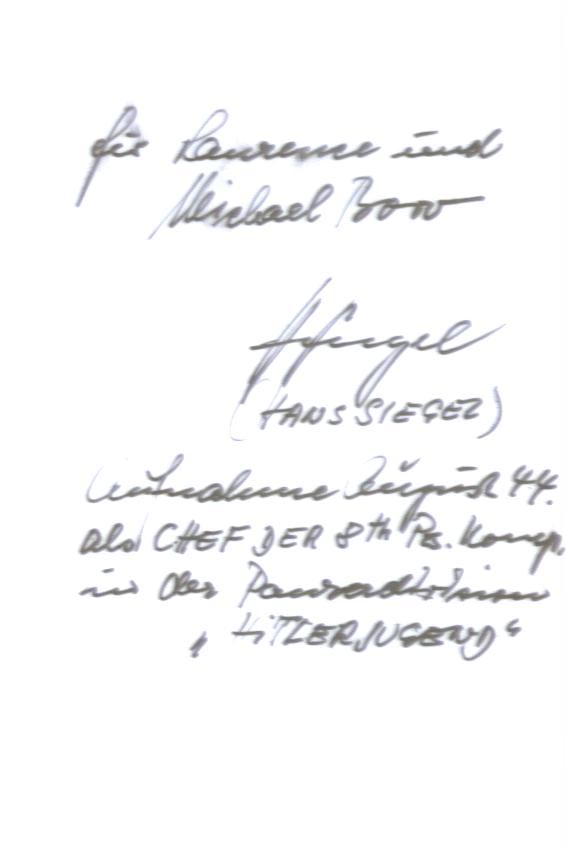 für Laurence und
Michael Boow
HSiegel
(HANS SIEGEL)
Aufnahme August 44.
als CHEF DER 8th Pz. Komp.
in der Panzerdivision
„HITLERJUGEND“